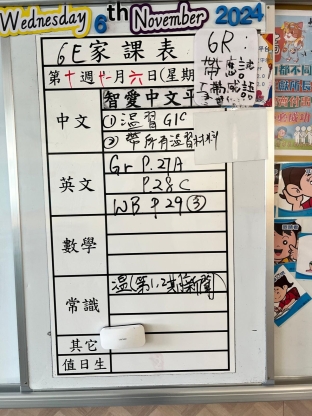 Wednesday 6th November 2024
6E家課表
第十週十一月六日(星期
6R:
帶應試
智愛中文平
中文
①溫習G1C
②帶所有溫習材料
英文
Gr P.27A
P.28C
WB P.29③
數學
常識
溫(第1,2
其它
值日生